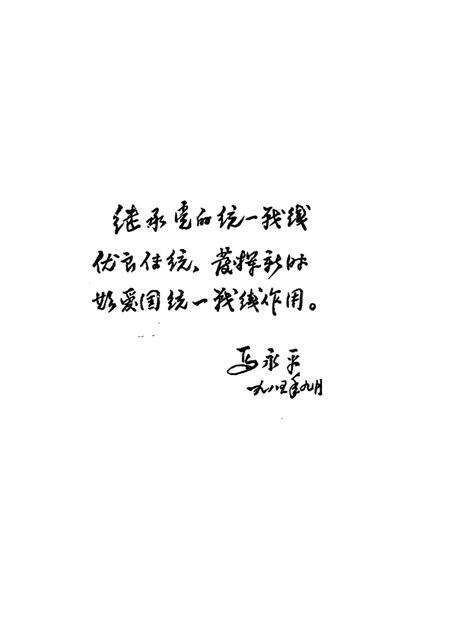 继承党的统一战线
优良传统、发挥新时
期爱国统一战线作用。
马永平
一九八五年九月